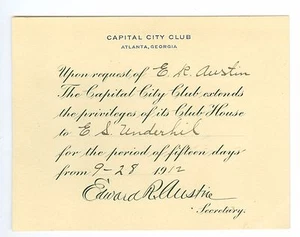 CAPITAL CITY CLUB
ATLANTA, GEORGIA
Upon request of E. R. Austin
The Capital City Club extends
the privileges of its Club House
to E S Underhil
for the period of fifteen days
from 9-28 1912
Edward R. Austin
Secretary.